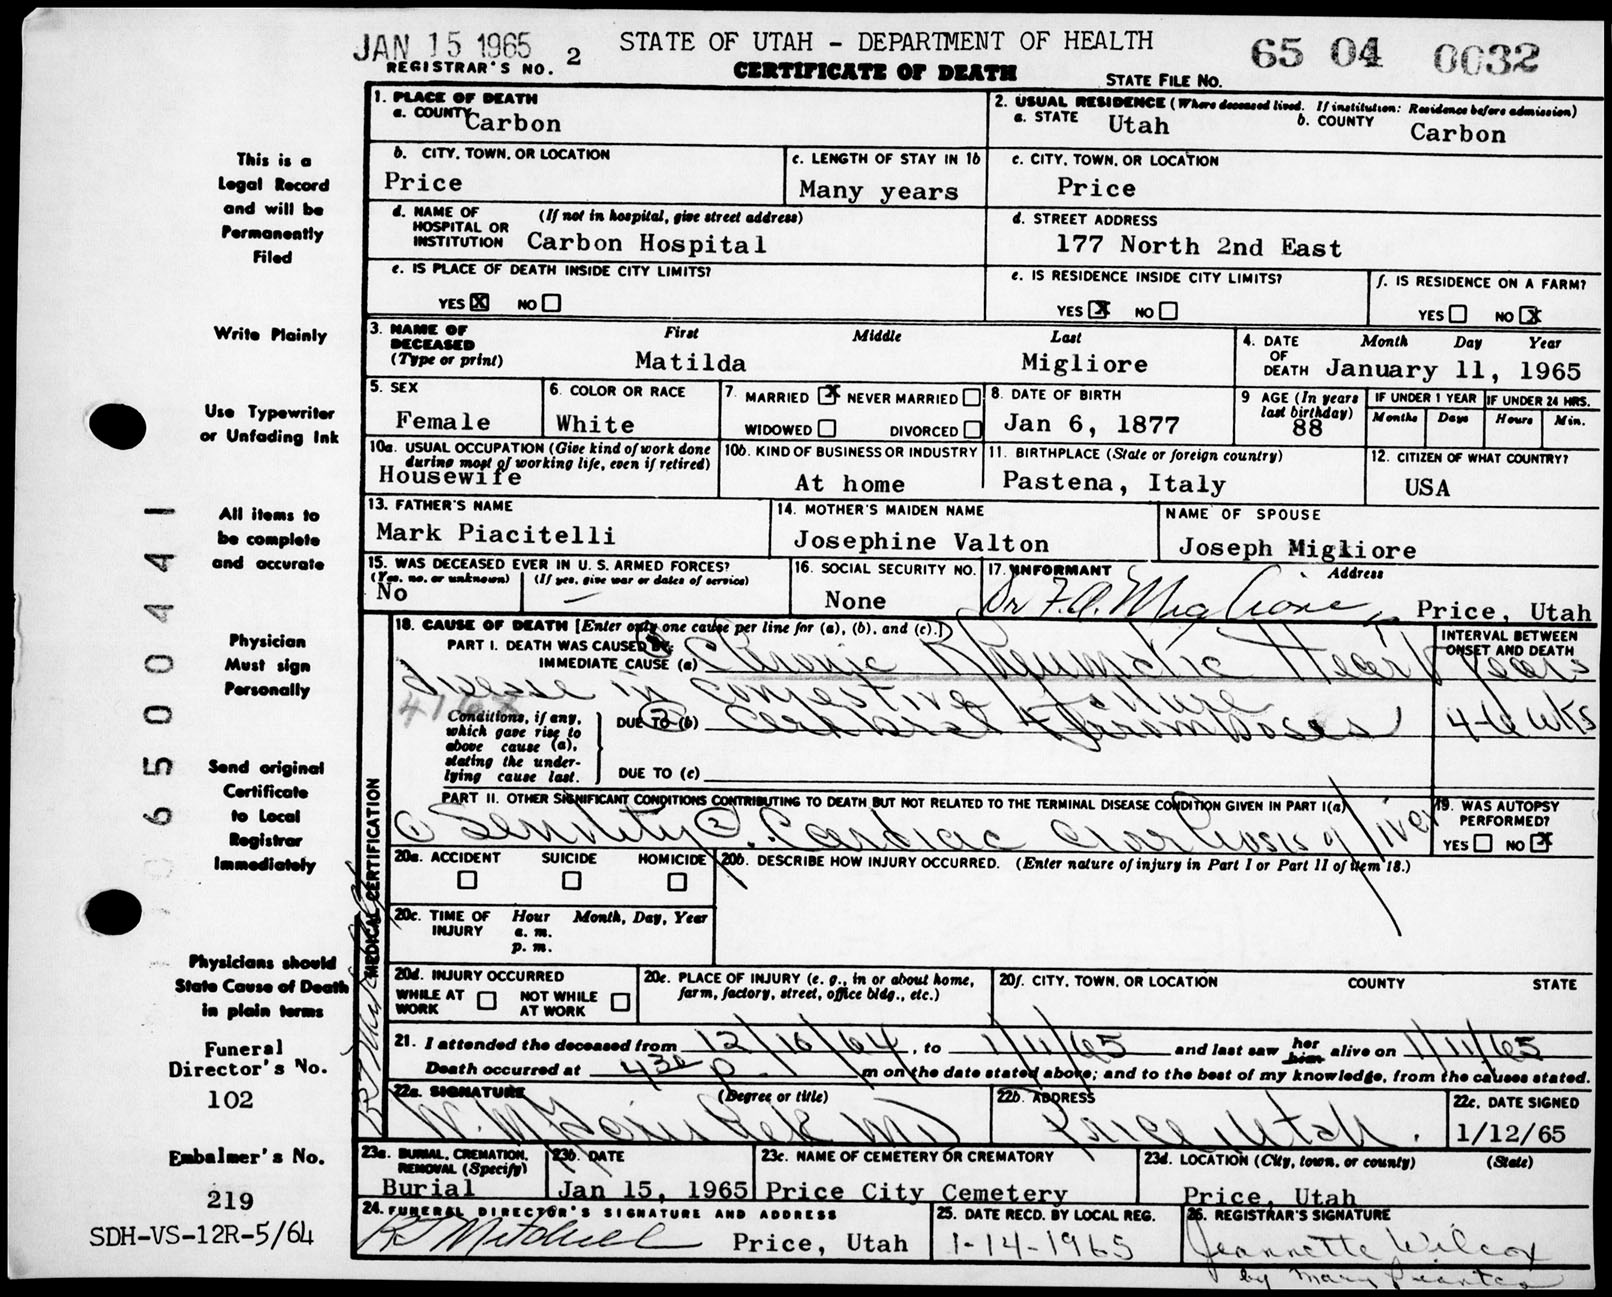 JAN 15 1965
STATE OF UTAH - DEPARTMENT OF HEALTH
65 04 0032
REGISTRAR'S NO. 2
CERTIFICATE OF DEATH
STATE FILE NO.
1. PLACE OF DEATH
a. COUNTY Carbon
2. USUAL RESIDENCE (Where deceased lived. If institution: Residence before admission)
a. STATE Utah b. COUNTY Carbon
b. CITY, TOWN, OR LOCATION
Price
c. LENGTH OF STAY IN 1b
Many years
c. CITY, TOWN, OR LOCATION
Price
d. NAME OF HOSPITAL OR INSTITUTION (If not in hospital, give street address)
Carbon Hospital
d. STREET ADDRESS
177 North 2nd East
e. IS PLACE OF DEATH INSIDE CITY LIMITS?
YES X NO
e. IS RESIDENCE INSIDE CITY LIMITS?
YES X NO
f. IS RESIDENCE ON A FARM?
YES NO X
3. NAME OF DECEASED (Type or print)
First Middle Last
Matilda Migliore
4. DATE OF DEATH
Month Day Year
January 11, 1965
5. SEX
Female
6. COLOR OR RACE
White
7. MARRIED X NEVER MARRIED
WIDOWED DIVORCED
8. DATE OF BIRTH
Jan 6, 1877
9 AGE (In years last birthday)
88
IF UNDER 1 YEAR
Months Days
IF UNDER 24 HRS.
Hours Min.
10a. USUAL OCCUPATION (Give kind of work done during most of working life, even if retired)
Housewife
10b. KIND OF BUSINESS OR INDUSTRY
At home
11. BIRTHPLACE (State or foreign country)
Pastena, Italy
12. CITIZEN OF WHAT COUNTRY?
USA
13. FATHER'S NAME
Mark Piacitelli
14. MOTHER'S MAIDEN NAME
Josephine Valton
NAME OF SPOUSE
Joseph Migliore
15. WAS DECEASED EVER IN U. S. ARMED FORCES?
(Yes, no, or unknown) (If yes, give war or dates of service)
No —
16. SOCIAL SECURITY NO.
None
17. INFORMANT Address
Dr F. A. Migliore, Price, Utah
18. CAUSE OF DEATH [Enter only one cause per line for (a), (b), and (c).]
PART I. DEATH WAS CAUSED BY:
IMMEDIATE CAUSE (a) Chronic Rheumatic Heart
disease in congestive failure
INTERVAL BETWEEN ONSET AND DEATH
years
416X
Conditions, if any, which gave rise to above cause (a), stating the underlying cause last.
DUE TO (b) (2) Cerebral Thromboses 4-6 wks
DUE TO (c)
PART II. OTHER SIGNIFICANT CONDITIONS CONTRIBUTING TO DEATH BUT NOT RELATED TO THE TERMINAL DISEASE CONDITION GIVEN IN PART I(a)
(1) Senility (2) Cardiac cirrhosis of liver
19. WAS AUTOPSY PERFORMED?
YES NO X
20a. ACCIDENT SUICIDE HOMICIDE
20b. DESCRIBE HOW INJURY OCCURRED. (Enter nature of injury in Part I or Part II of item 18.)
20c. TIME OF INJURY Hour Month, Day, Year
a. m.
p. m.
20d. INJURY OCCURRED
WHILE AT WORK NOT WHILE AT WORK
20e. PLACE OF INJURY (e. g., in or about home, farm, factory, street, office bldg., etc.)
20f. CITY, TOWN, OR LOCATION COUNTY STATE
21. I attended the deceased from 12/16/64, to 1/11/65 and last saw her him alive on 1/11/65
Death occurred at 4 30 p. m on the date stated above; and to the best of my knowledge, from the causes stated.
22a. SIGNATURE (Degree or title)
MD
22b. ADDRESS
Price, Utah.
22c. DATE SIGNED
1/12/65
23a. BURIAL, CREMATION, REMOVAL (Specify)
Burial
23b. DATE
Jan 15, 1965
23c. NAME OF CEMETERY OR CREMATORY
Price City Cemetery
23d. LOCATION (City, town, or county) (State)
Price, Utah
24. FUNERAL DIRECTOR'S SIGNATURE AND ADDRESS
RJ Mitchell Price, Utah
25. DATE RECD. BY LOCAL REG.
1-14-1965
26. REGISTRAR'S SIGNATURE
Jeannette Wilcox
by Mary
MEDICAL CERTIFICATION
This is a
Legal Record
and will be
Permanently
Filed
Write Plainly
Use Typewriter
or Unfading Ink
All items to
be complete
and accurate
Physician
Must sign
Personally
Send original
Certificate
to Local
Registrar
Immediately
Physicians should
State Cause of Death
in plain terms
Funeral
Director's No.
102
Embalmer's No.
219
SDH-VS-12R-5/64
6500441